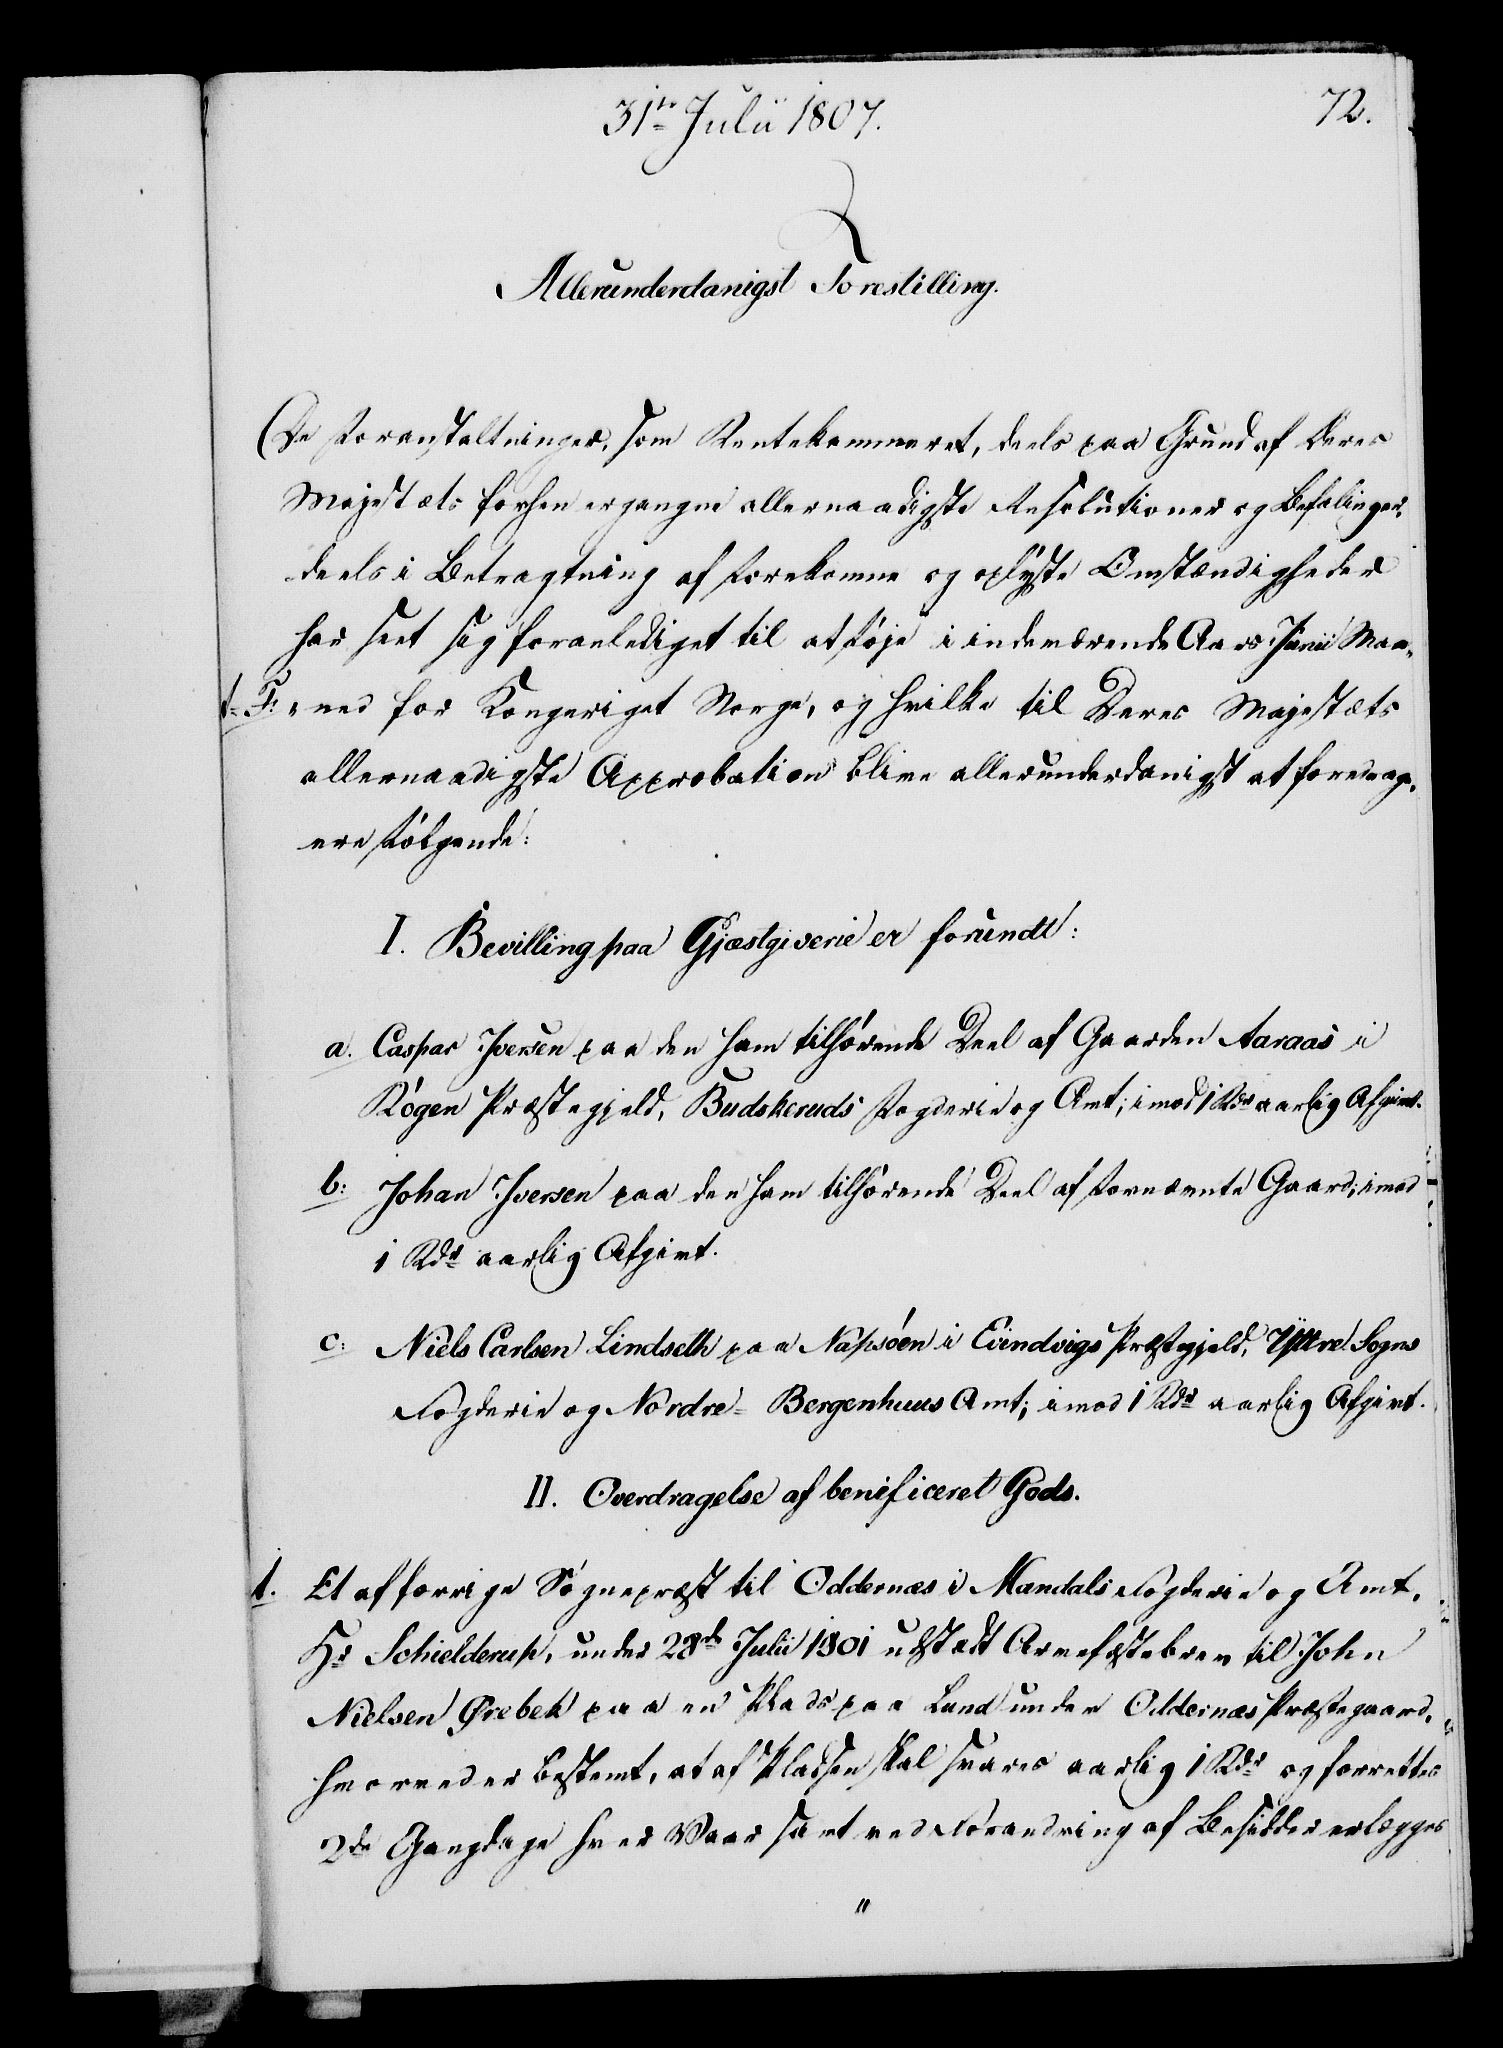 31te Julii 1807.
72.
Allerunderdanigst Forestilling.
De Foranstaltninger, som Rentekammeret, deels paa Grund af Deres
Majestæts forhen ergangne allernaadigste Resolutioner og Befalinger,
deels i Betragtning af forekomne og oplyste Omstændigheder
har seet sig foranlediget til at føje i indeværende Aars Junii Maa-
t. F: ned for Kongeriget Norge, og hvilke til Deres Majestæts
allernaadigste Approbation blive allerunderdanigst at foredrage,
ere følgende:
I. Bevilling paa Gjæstgiverie er forundt:
a. Caspar Iversen paa den ham tilhørende Deel af Gaarden Aaraas i
Røgen Præstegjeld, Budskeruds Fogderie og Amt; imod 1 Rdr aarlig Afgivt.
b: Johan Iversen paa den ham tilhørende Deel af fornævnte Gaard; imod
1 Rdr aarlig Afgivt.
c: Niels Carlsen Lindseth paa Napsøen i Evindvigs Præstegjeld, Yttre Sogns
Fogderie og Nordre-Bergenhuus Amt; imod 1 Rdr aarlig Afgivt.
II. Overdragelse af benificeret Gods.
1. Et af forrige Sognepræst til Oddernæs i Mandals Fogderie og Amt,
Hr Schielderup, under 28de Julii 1801 udstædt Arvefæstebrev til John
Nielsen Ørebek paa en Plads paa Lund under Oddernæs Præstegaard,
hvorved er bestemt, at af Pladsen skal svares aarlig 1 Rdr og forrettes
2de Gangdage hver Vaar samt ved Forandring af Besidder erlægges
"